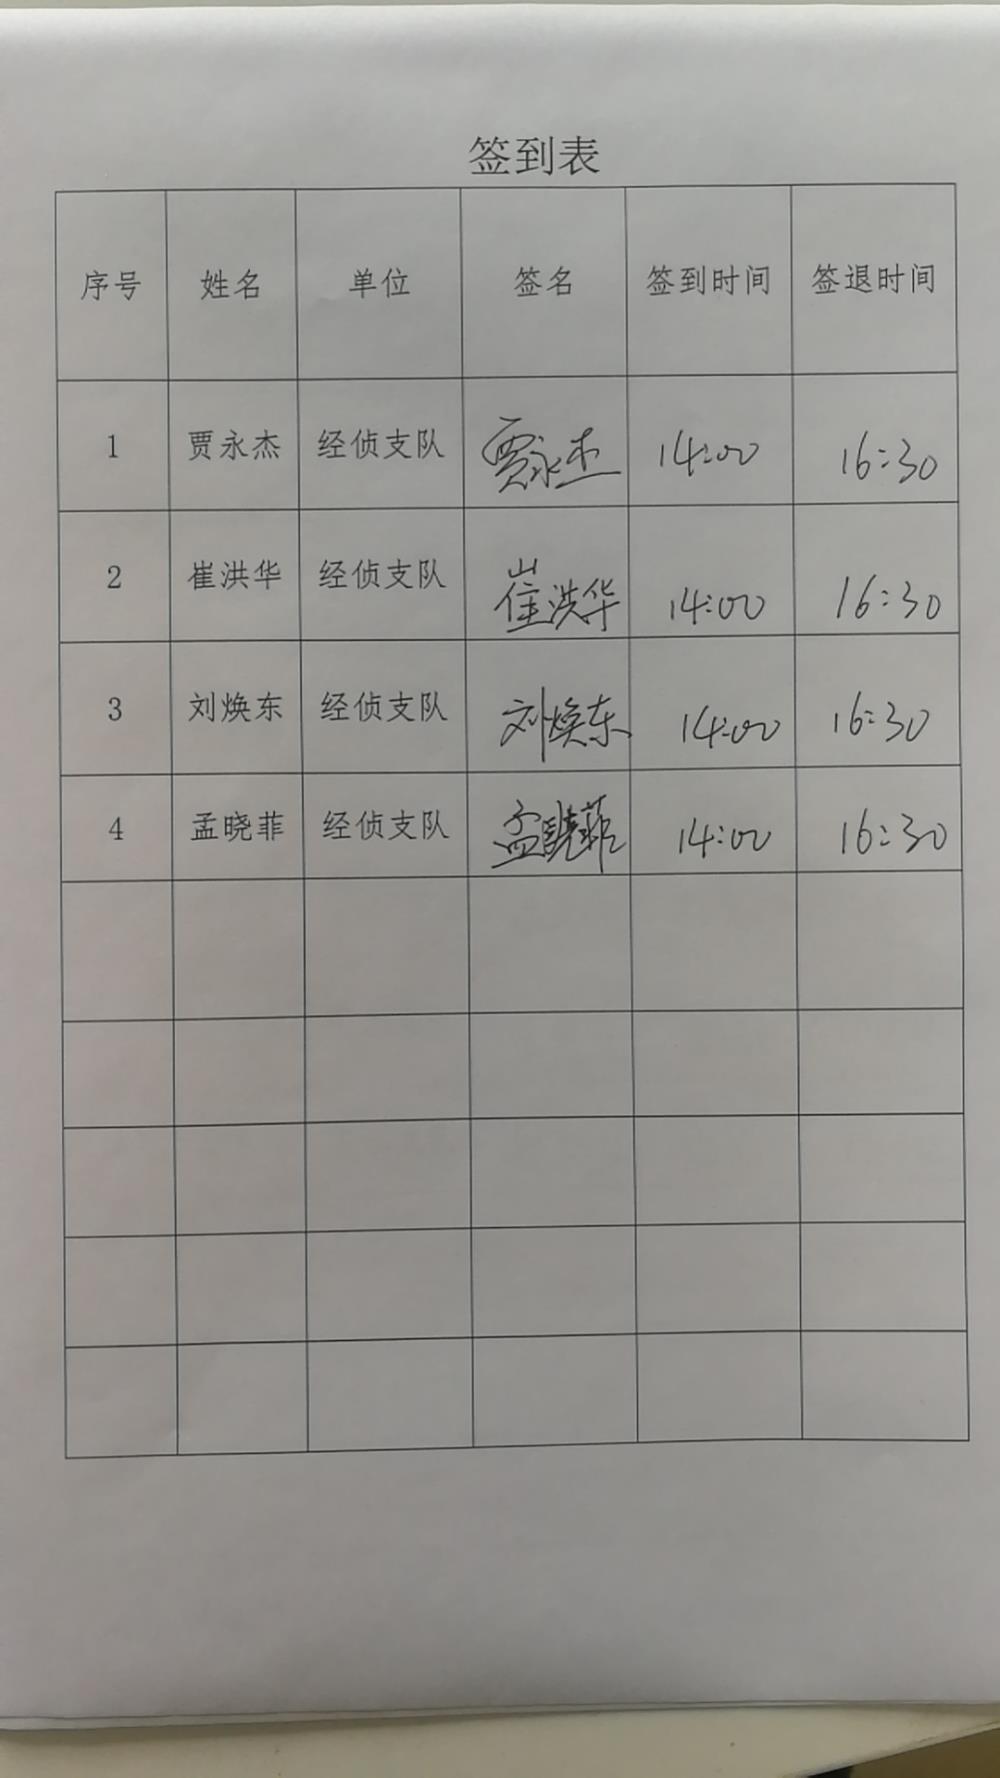 签到表
序号 姓名 单位 签名 签到时间 签退时间
1 贾永杰 经侦支队 贾永杰 14:00 16:30
2 崔洪华 经侦支队 崔洪华 14:00 16:30
3 刘焕东 经侦支队 刘焕东 14:00 16:30
4 孟晓菲 经侦支队 孟晓菲 14:00 16:30